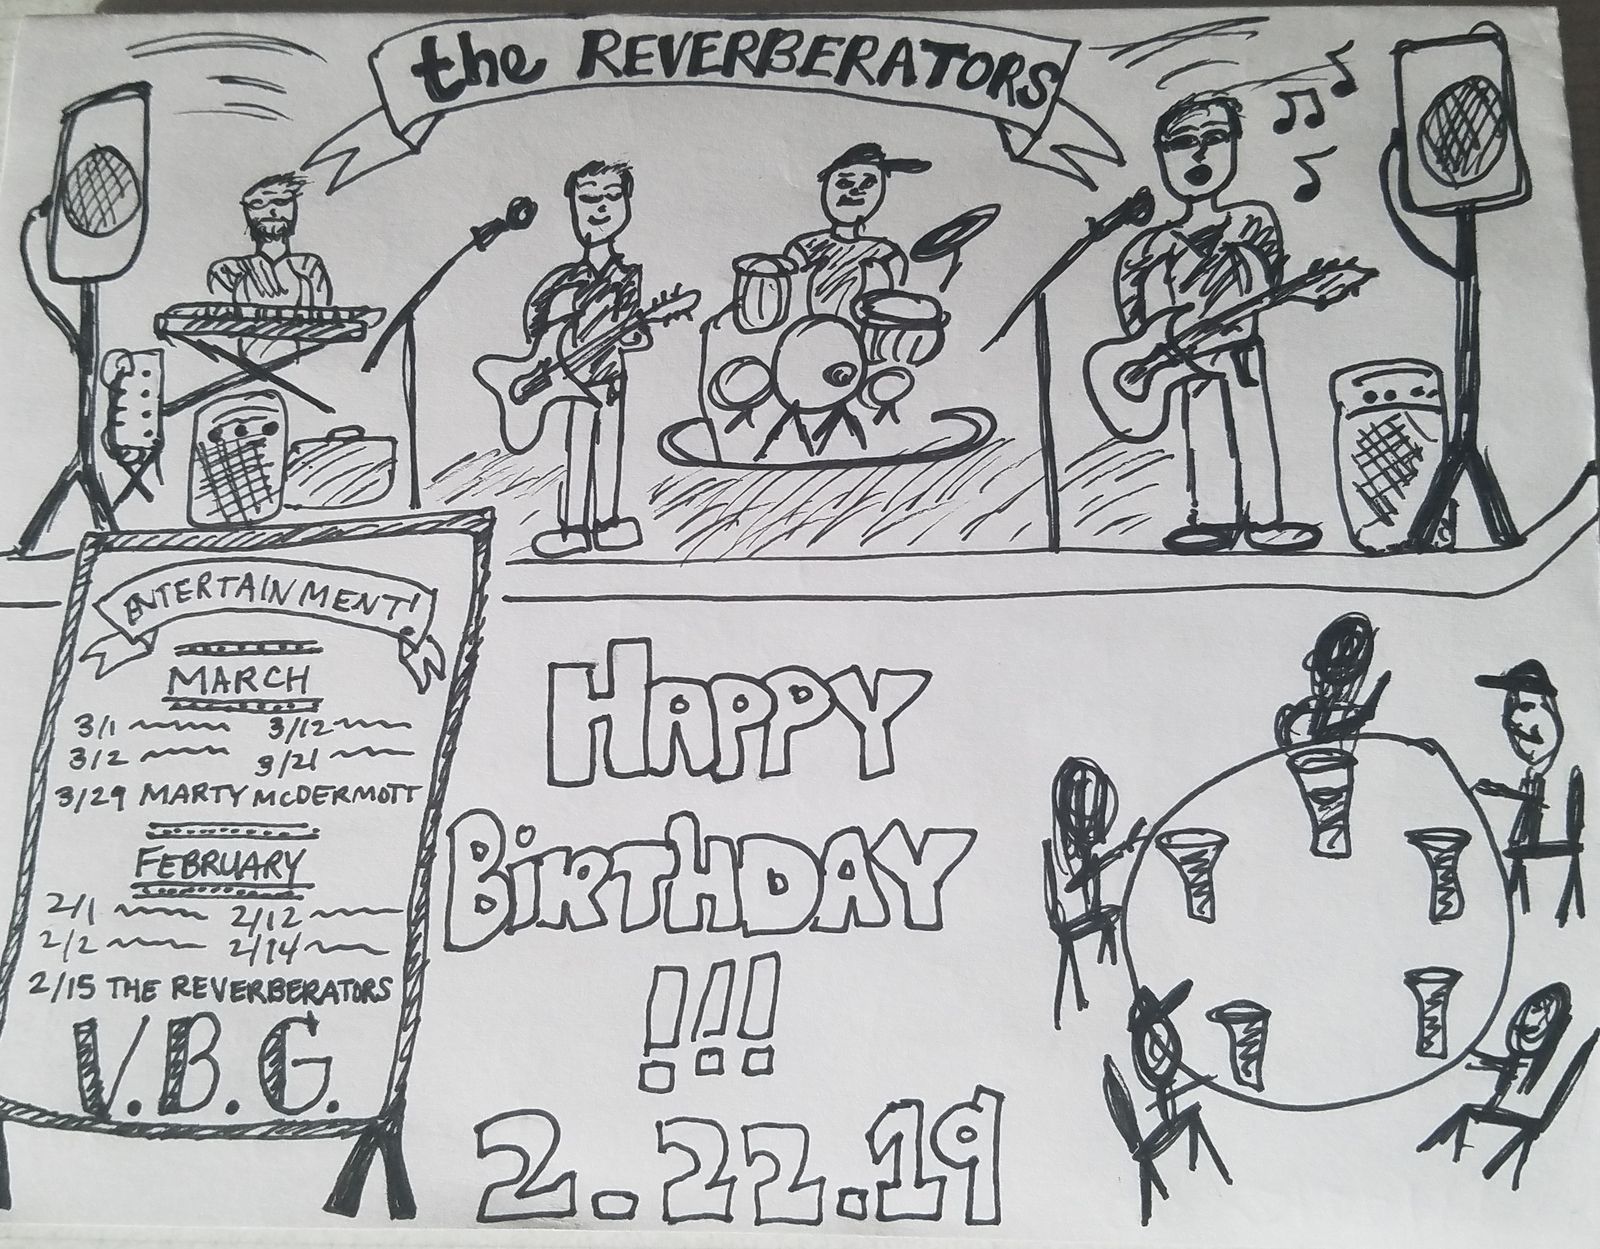 the REVERBERATORS
ENTERTAINMENT!
MARCH
3/1 3/12
3/2 3/21
3/29 MARTY McDERMOTT
FEBRUARY
2/1 2/12
2/2 2/14
2/15 THE REVERBERATORS
V.B.G.
HAPPY
BiRTHDAY
!!!
2.22.19